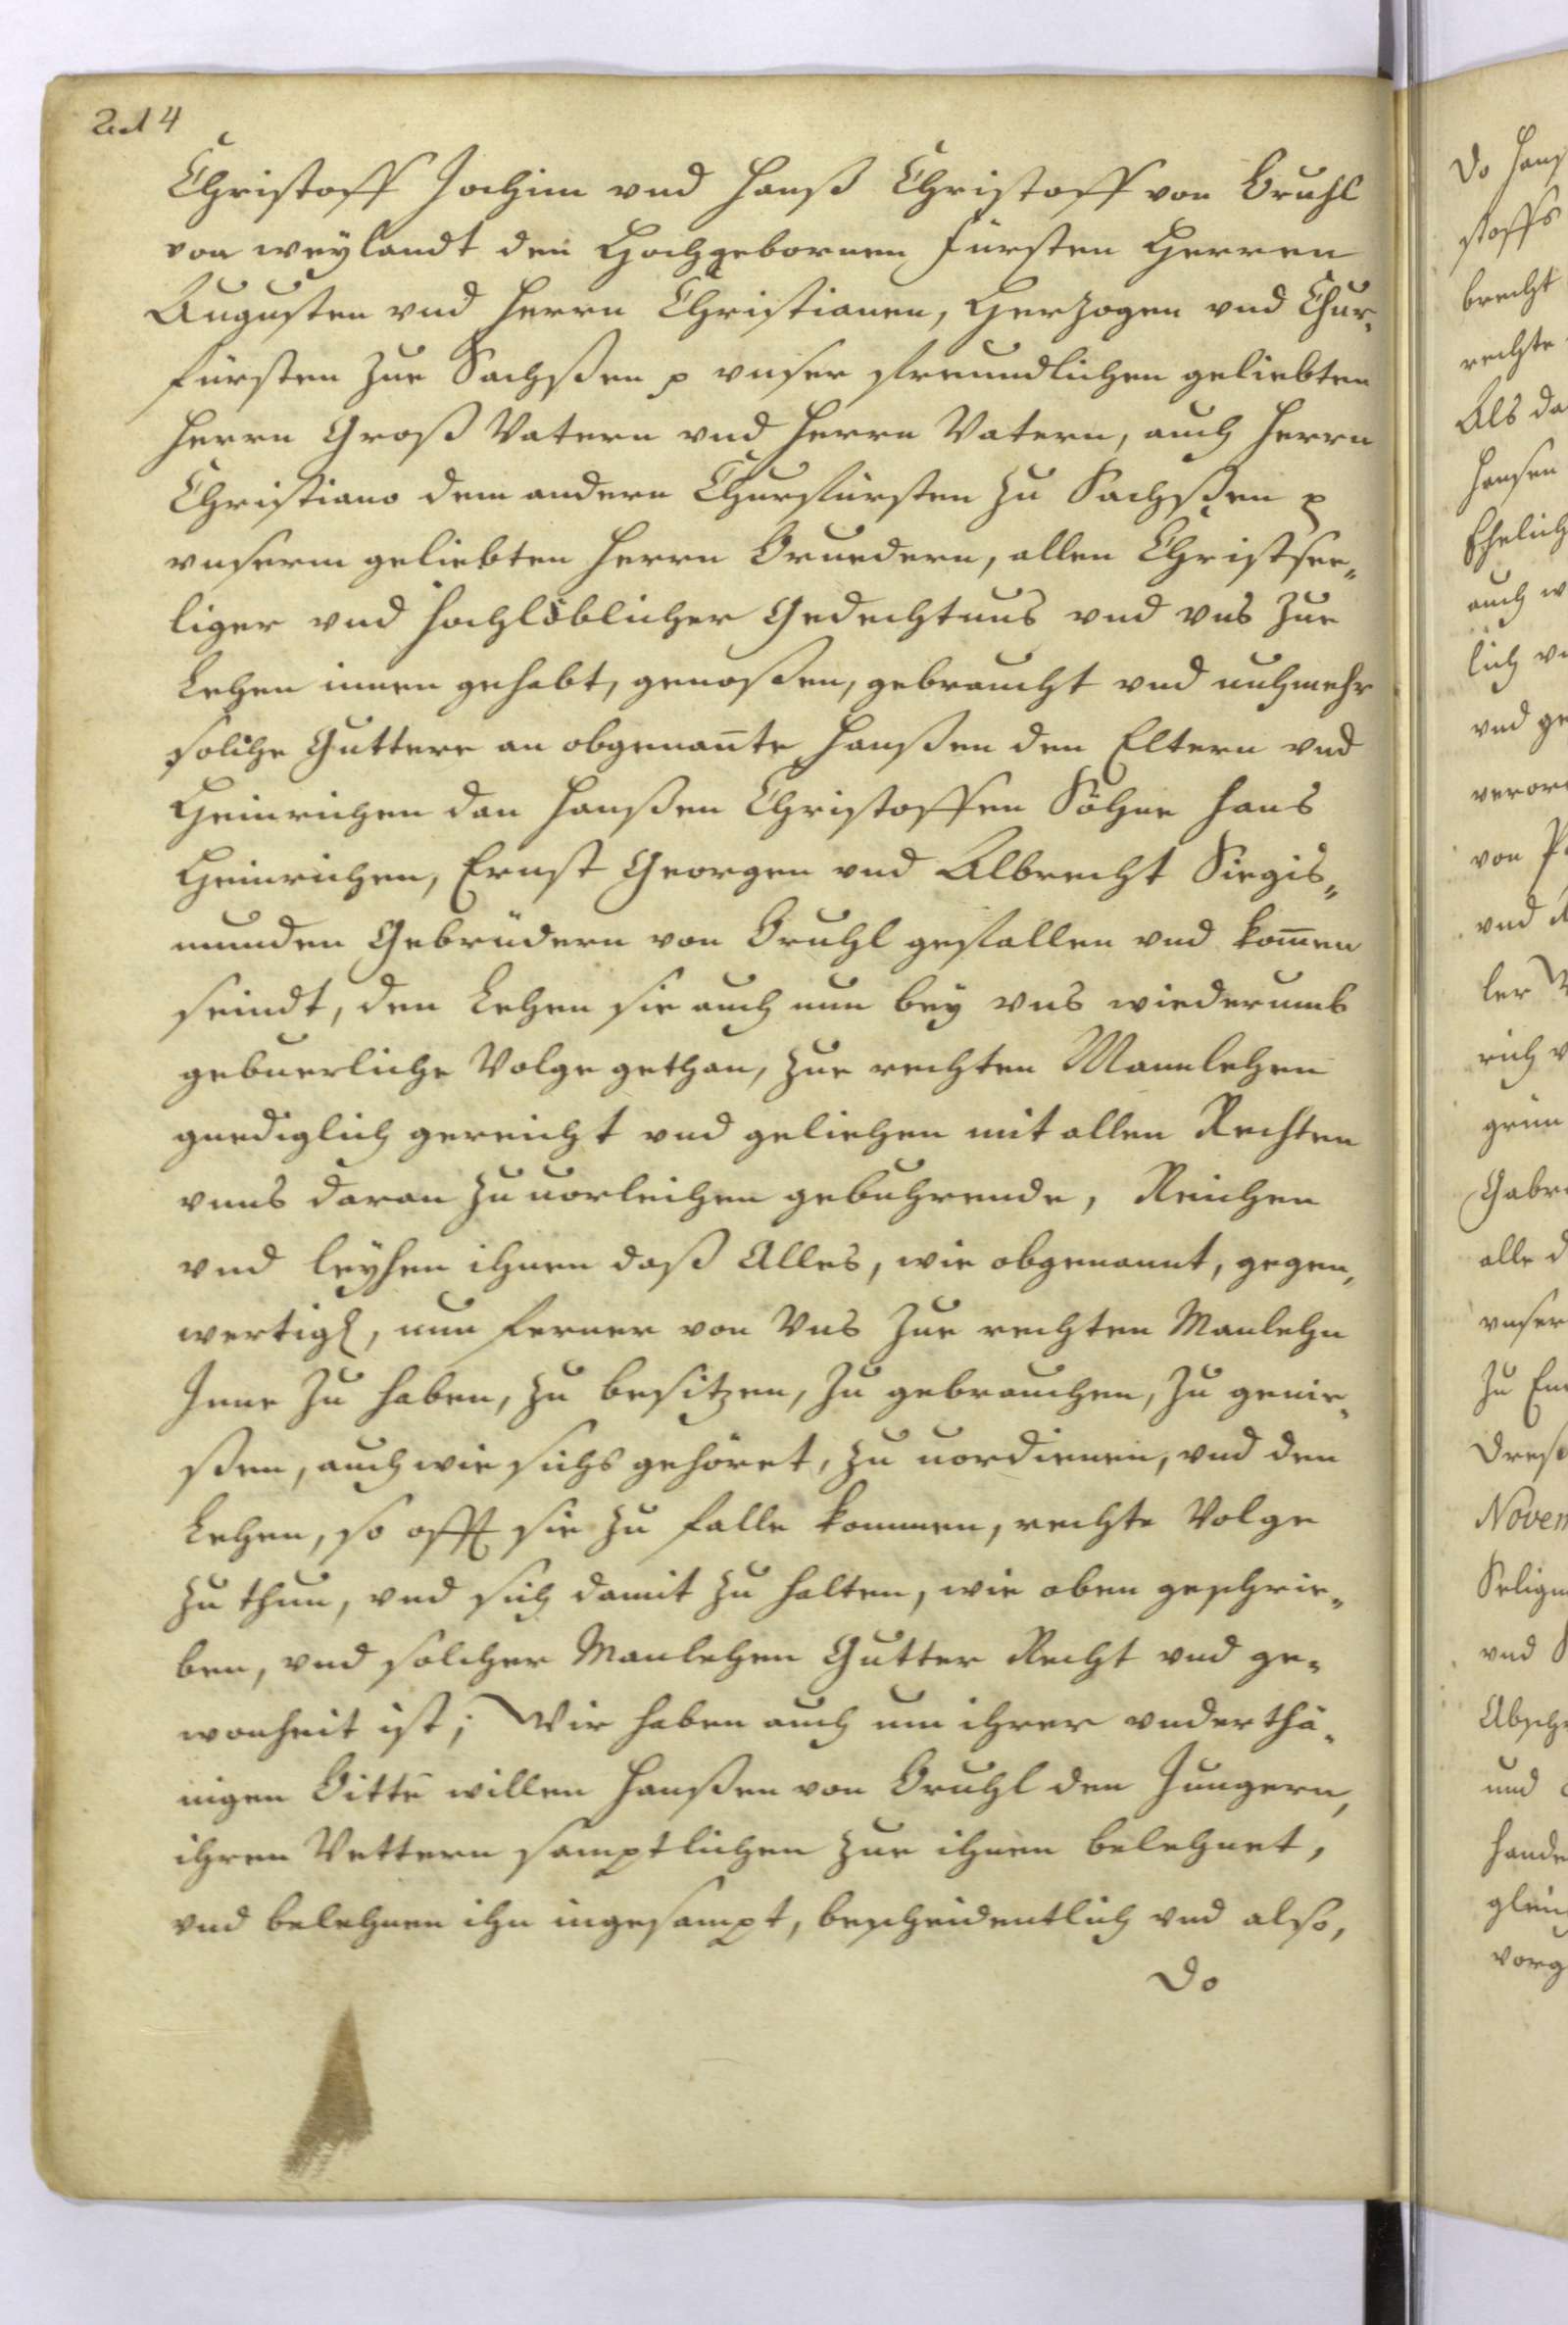 Christoff Jochim vnd Hanß Christoff von Bruhl
von weylandt den Hochgebornen Fürsten Herren
Augusten vnd Herrn Christianen, Herzogen vnd Chur-
fürsten zue Sachßen p vnser freundlichen geliebten
Herrn Groß Vatern vnd Herrn Vatern, auch Herrn
Christiano dem andern Churfürsten zu Sachßen p
vnserm geliebten Herrn Bruedern, allen Christsee-
liger vnd hochlöblicher Gedechtnus vnd vns zue
Lehen innen gehabt, genoßen, gebraucht vnd nuhmehr
solche Guttere an obgenan̄te Hanßen den Eltern vnd
Heinrichen dan Hanßen Christoffen Söhne Hans
Heinrichen, Ernst Georgen vnd Albrecht Siegis-
munden Gebrüdern von Bruhl gefallen vnd kom̄en
seindt, den Lehen sie auch nun bey vns wiederumb
gebuerliche Volge gethan, zue rechten Mannlehen
gnediglich gereicht vnd geliehen mit allen Rechten
vnns daran zuuorleihen gebuhrende, Reichen
vnd leyhen ihnen daß Alles, wie obgenannt, gegen-
wertigl, nun ferner von Vns zue rechten Manlehn
Inne zu haben, zu besitzen, zu gebrauchen, zu genie-
ßen, auch wie sichs gehöret, zu uordienen, vnd den
Lehen, so offt sie zu falle kommen, rechte Volge
zu thun, vnd sich damit zu halten, wie oben geschrie-
ben, vnd solcher Manlehen Gutter Recht vnd ge-
wonheit ist; Wir haben auch um ihrer vnderthä-
nigen Bitte willen Hanßen von Bruhl den Jungern,
ihren Vettern samptlichen zue ihnen belehnet,
vnd belehnen ihn ingesampt, bescheidentlich vnd also,
Do